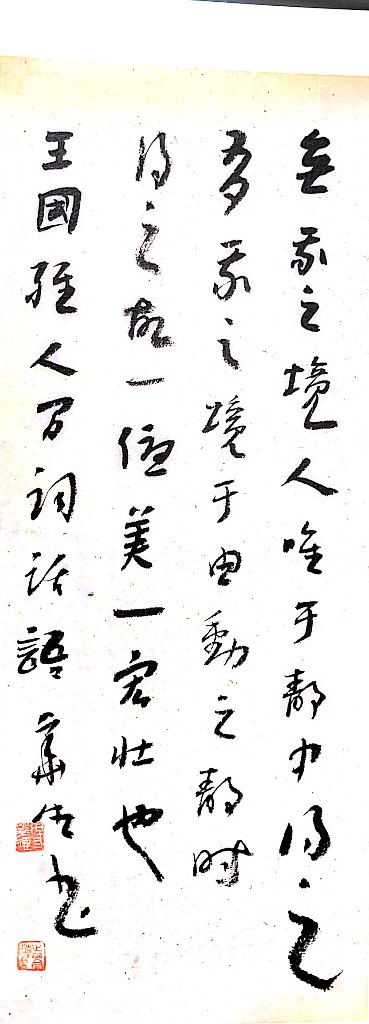 無我之境人唯于靜中得之
有我之境于由動之靜时
得之故一優美一宏壯也
王國維人间词话語 華 书